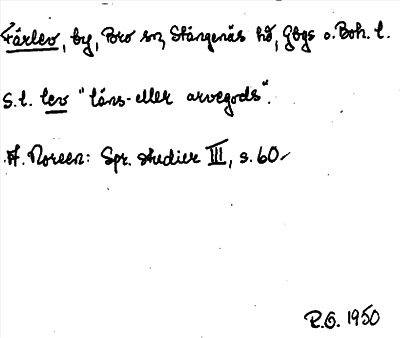 Färlev, by, Bro sn, Stångenäs hd, Gbgs o. Boh. l.
S. l. lev "läns- eller arvegods".
A. Noreen: Spr. studier III, s. 60.
R.O. 1950